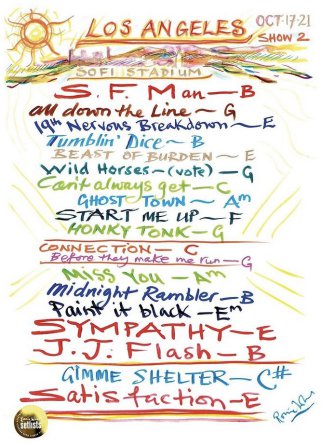 LOS ANGELES
OCT-17-21
SHOW 2
SOFI STADIUM
S.F. Man — B
All down the Line — G
19th Nervous Breakdown — E
Tumblin' Dice — B
BEAST OF BURDEN — E
Wild Horses — (vote) — G
Can't always get — C
GHOST TOWN — Am
START ME UP — F
HONKY TONK — G
CONNECTION — C
Before they make me run — G
MISS YOU — Am
Midnight Rambler — B
Paint it black — Em
SYMPATHY — E
J.J. Flash — B
GIMME SHELTER — C#
Satisfaction — E
setlists